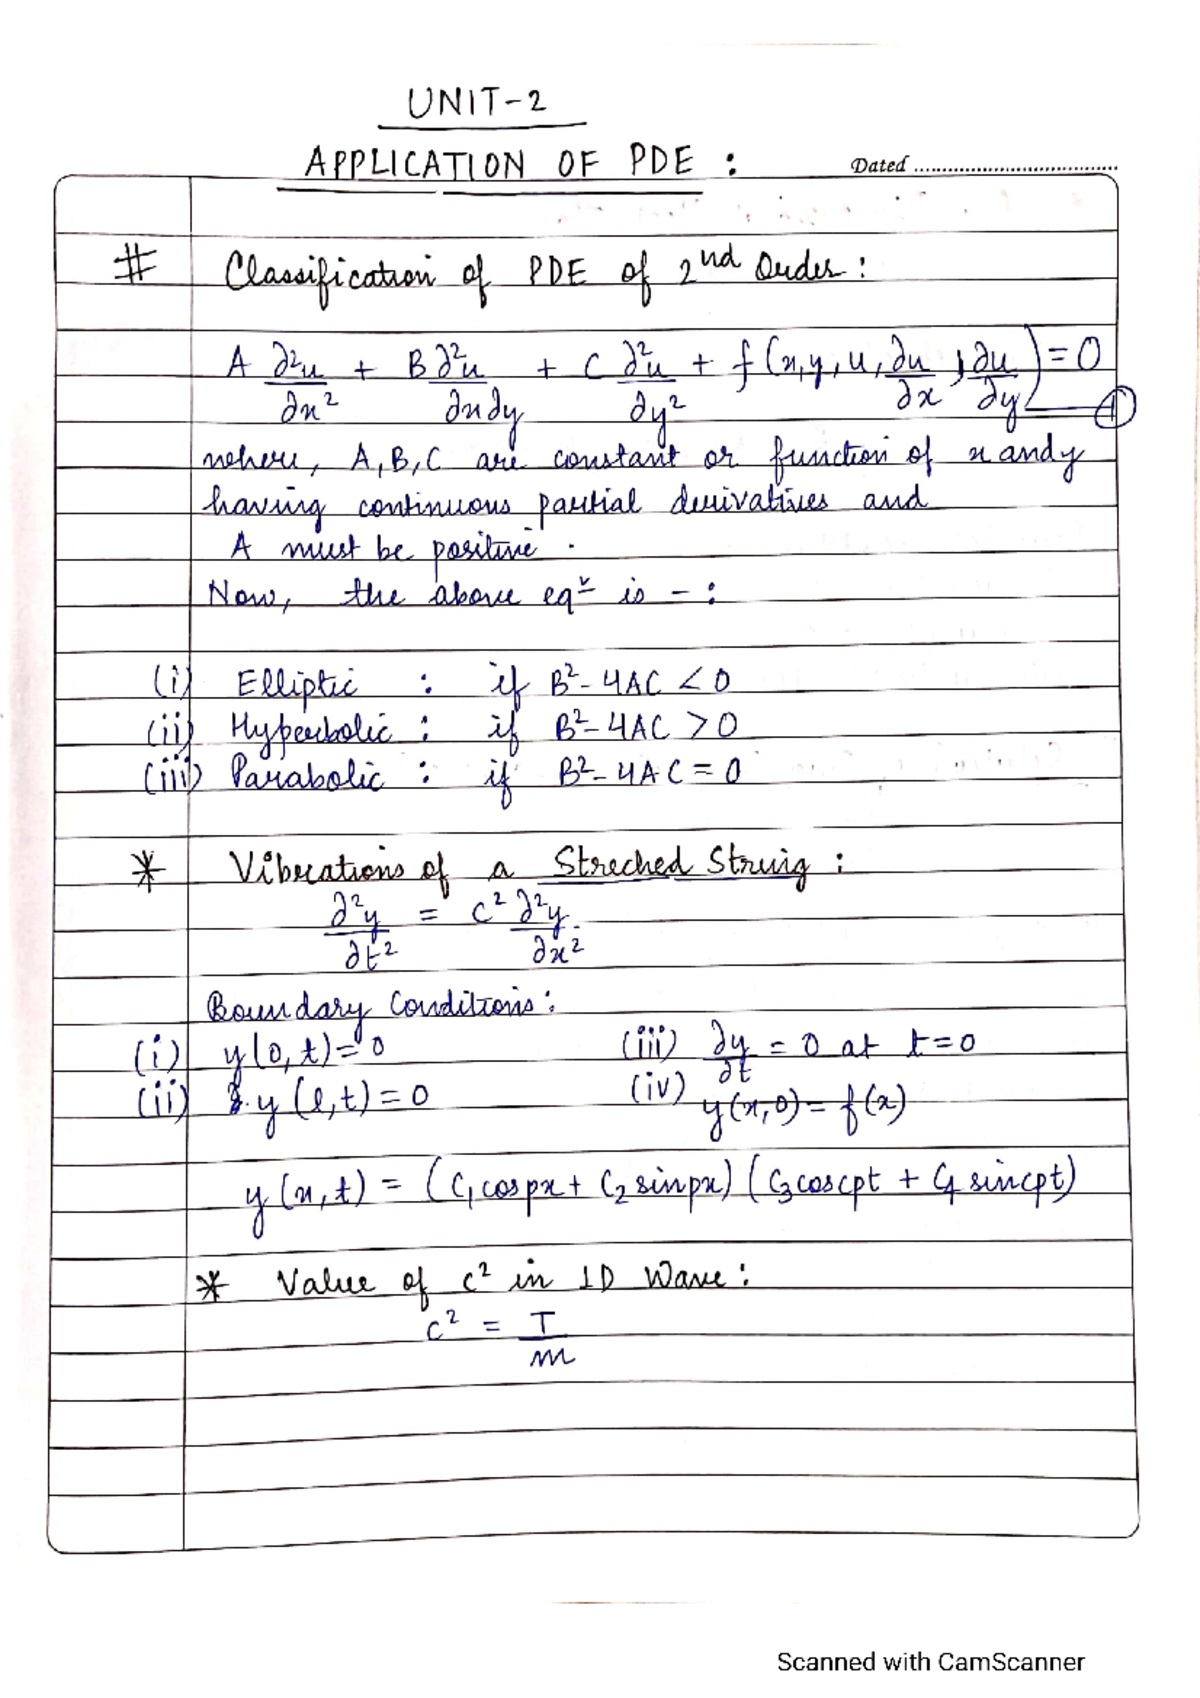 UNIT-2
APPLICATION OF PDE :
Dated ....................................
# Classification of PDE of 2nd Order :
A ∂²u/∂x² + B ∂²u/∂x∂y + C ∂²u/∂y² + f(x, y, u, ∂u/∂x, ∂u/∂y) = 0 — ①
where, A, B, C are constant or function of x and y
having continuous partial derivatives and
A must be positive .
Now, the above eqⁿ is - :
(i) Elliptic : if B² - 4AC < 0
(ii) Hyperbolic : if B² - 4AC > 0
(iii) Parabolic : if B² - 4AC = 0
* Vibrations of a Streched String :
∂²y/∂t² = c² ∂²y/∂x²
Boundary Conditions :
(i) y(0, t) = 0
(ii) y(l, t) = 0
(iii) ∂y/∂t = 0 at t = 0
(iv) y(x, 0) = f(x)
y(x, t) = (C₁cospx + C₂ sinpx) (C₃coscpt + C₄ sincpt)
* Value of c² in 1D Wave :
c² = T/m
Scanned with CamScanner